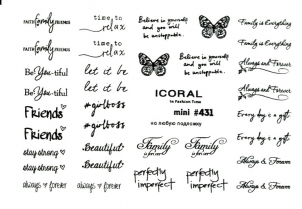 FAITH family FRIENDS
FAITH family FRIENDS
Be·You·tiful
Be·You·tiful
Friends
Friends
stay strong
stay strong
always & forever
time to
relax
time to
relax
let it be
let it be
#girlboss
#girlboss
Beautiful
Beautiful
always & forever
Believe in yourself
and you will
be unstoppable.
Believe in yourself
and you will
be unstoppable.
ICORAL
In Fashion Time
mini #431
на любую подложку
Family
Family
perfectly
imperfect
perfectly
imperfect
Family is Everything
Family is Everything
Always and Forever
Always and Forever
Every day is a gift.
Every day is a gift.
Always & Forever
Always & Forever